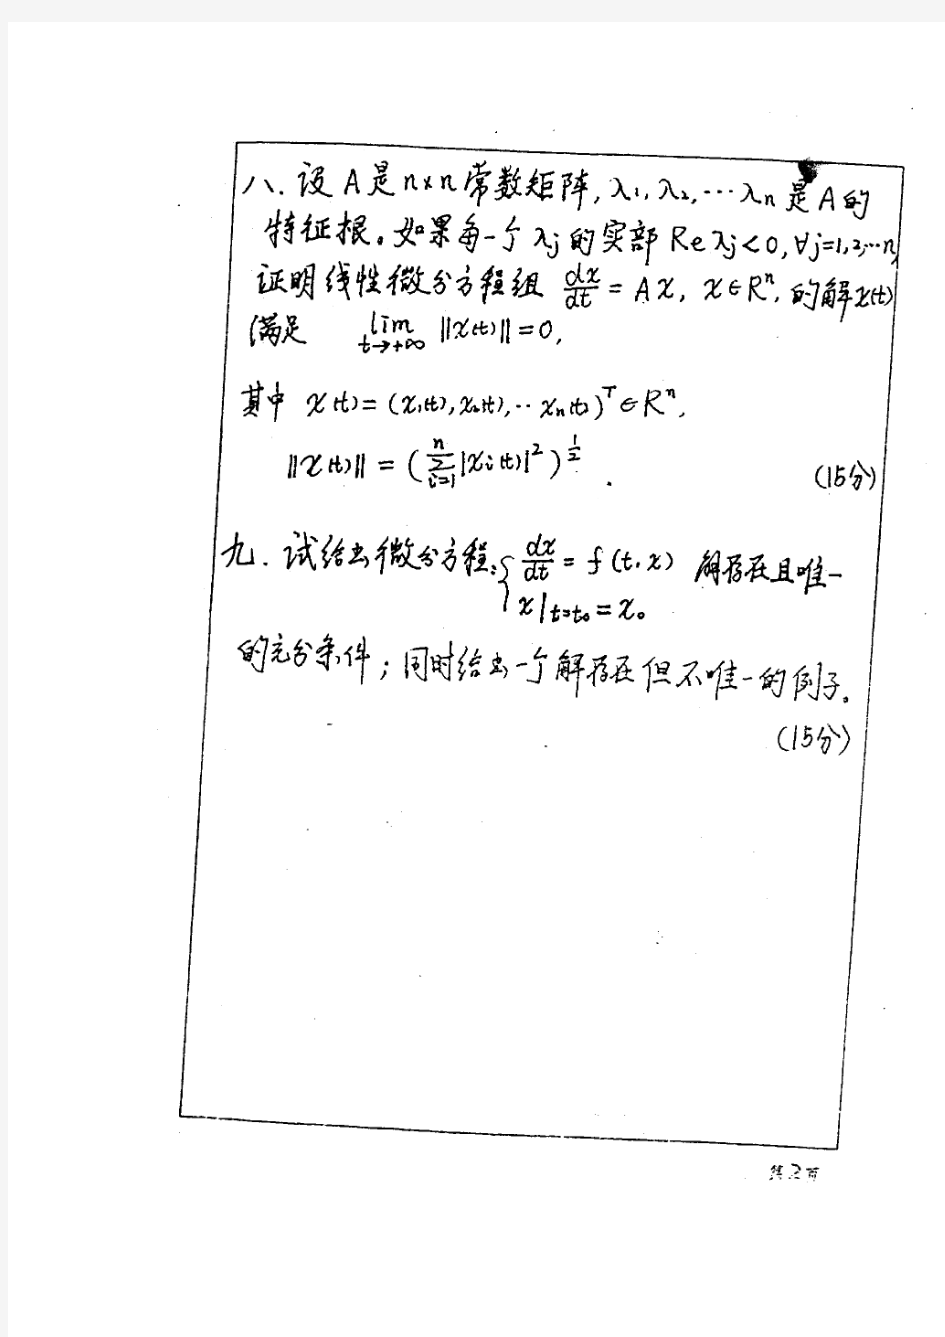 八. 设 A 是 n×n 常数矩阵, λ₁, λ₂, … λn 是 A 的
特征根。如果每一个 λj 的实部 Re λj < 0, ∀j=1,2,…n,
证明线性微分方程组 dx/dt = Ax, x∈Rⁿ, 的解 x(t)
满足 lim t→+∞ ||x(t)|| = 0,
其中 x(t) = (x₁(t), x₂(t), ‥ xn(t))ᵀ ∈ Rⁿ,
||x(t)|| = (∑ i=1 n |xi(t)|²)^½ . (15分)
九. 试给出微分方程: { dx/dt = f(t, x) 解存在且唯一
x|t=t₀ = x₀
的充分条件; 同时给出一个解存在但不唯一的例子。
(15分)
第2页